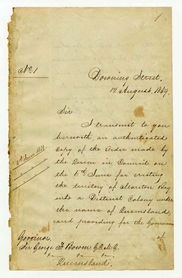 No 1
Downing Street,
18 August, 1859.
Sir
I transmit to you
herewith, an authenticated
copy of the Order made by
the Queen in Council on
the 6th June for erecting
the territory of Moreton Bay
into a District Colony under
the name of Queensland,
and providing for the Government
of
Governor
Sir George F. Bowen
Queensland.